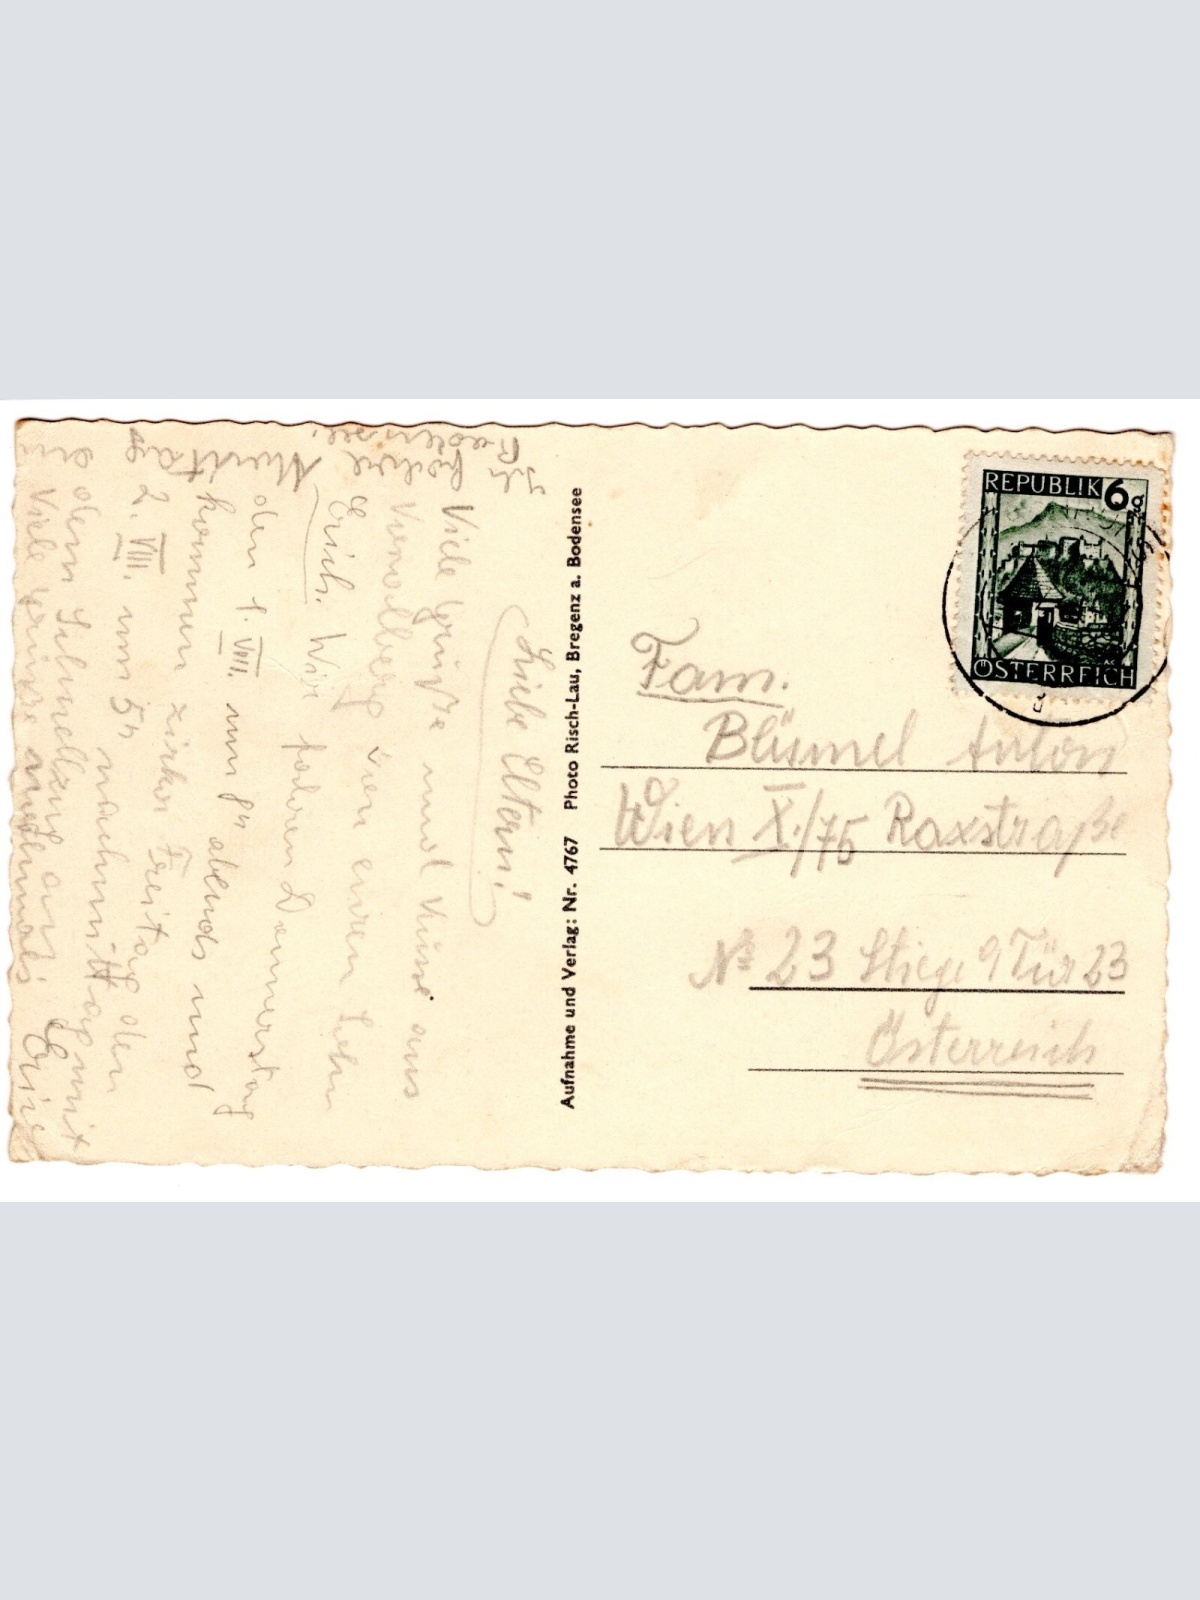 Liebe Eltern!
Viele Grüße und Küsse aus
Vorarlberg von euren Sohn
Erich. Wir fahren Donnerstag
den 1. VIII. um 8h abends und
kommen zirka Freitag den
2. VIII. um 5h nachmittag mit
dem Schnellzug an.
Viele Grüße nochmals Erich
Ich
Bodensee.
Aufnahme und Verlag: Nr. 4767 Photo Risch-Lau, Bregenz a. Bodensee
REPUBLIK 6g
ÖSTERREICH
Fam.
Blümel Anton
Wien X./75 Raxstraße
No 23 Stiege 9 Tür 23
Österreich